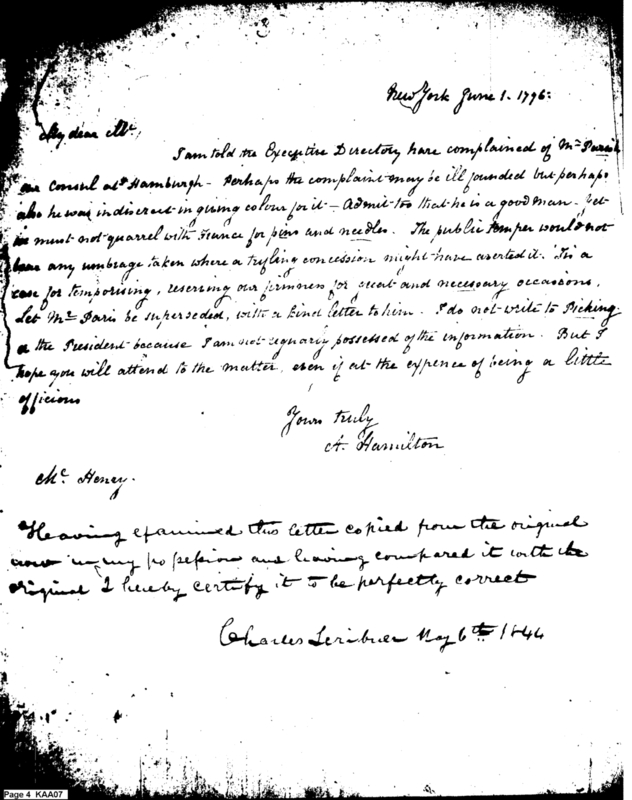 New York June 1. 1796:
My dear Mc,
I am told the Executive Directory have complained of Mr. Parish
our Consul at Hamburgh - Perhaps the complaint may be ill founded but perhaps
also he was indiscreet in giving colour for it - Admit too that he is a good man. Yet
we must not quarrel with France for pins and needles. The public temper would not
bear any umbrage taken where a trifling concession might have averted it. 'Tis a
case for temporising, reserving our firmness for great and necessary occasions.
Let Mr. Paris be superseded, with a kind letter to him. I do not write to Picking.
or the President because I am not regularly possessed of the information. But I
hope you will attend to the matter, even if at the expence of being a little
officious
Yours truly
A. Hamilton
Mc. Henry.
Having examined this letter copied from the original
now in my possession and having compared it with the
original I hereby certify it to be perfectly correct
Charles Scribner May 6th 1844
Page 4 KAA07